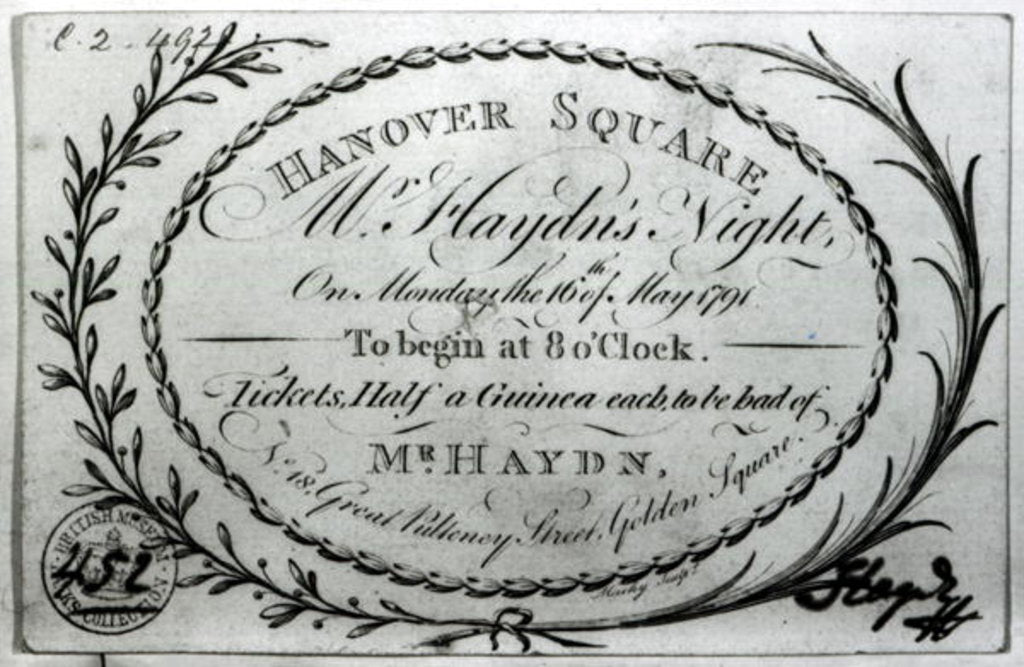 C. 2. 492
HANOVER SQUARE
Mr. Haydn's Night,
On Monday the 16th of May 1791.
To begin at 8 o'Clock.
Tickets, Half a Guinea each, to be had of
MR. HAYDN,
No. 18. Great Pulteney Street, Golden Square.
BRITISH MUSEUM
BANKS COLLECTION
452
Haydn